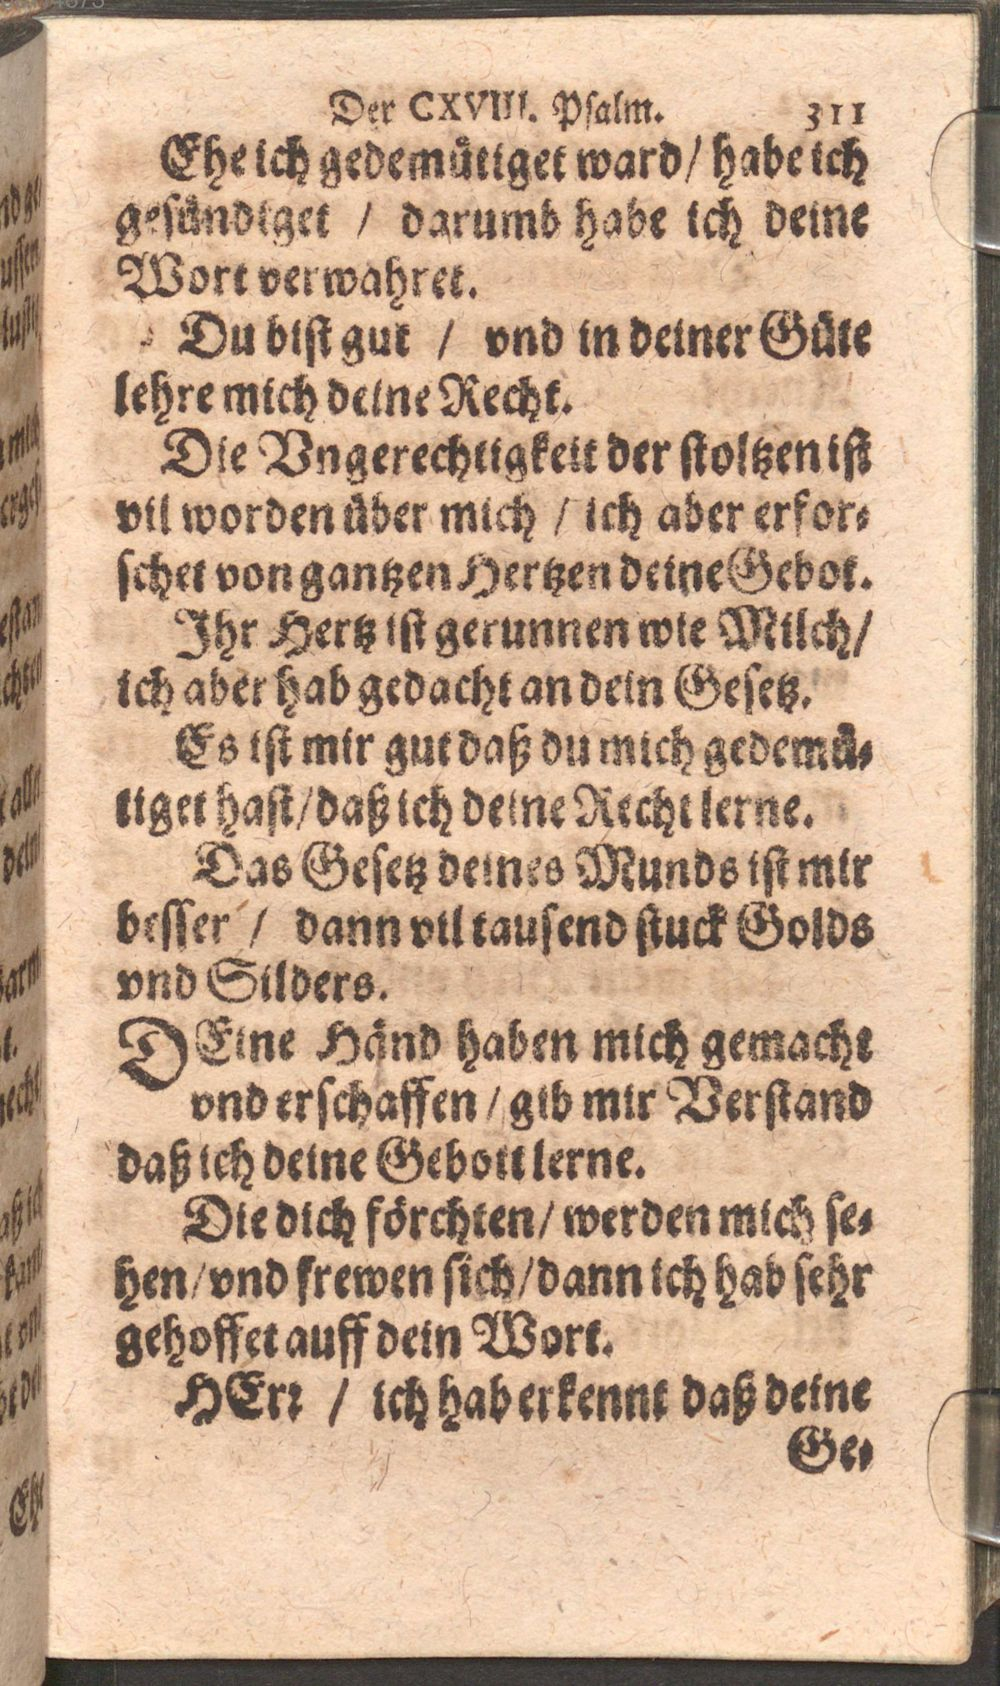 Der CXVIII. Psalm. 311
Ehe ich gedemütiget ward / habe ich
gesündiget / darumb habe ich deine
Wort verwahret.
Du bist gut / vnd in deiner Güte
lehre mich deine Recht.
Die Vngerechtigkeit der stoltzen ist
vil worden über mich / ich aber erfor-
schet von gantzen Hertzen deine Gebot.
Ihr Hertz ist gerunnen wie Milch /
ich aber hab gedacht an dein Gesetz.
Es ist mir gut daß du mich gedemü-
tiget hast / daß ich deine Recht lerne.
Das Gesetz deines Munds ist mir
besser / dann vil tausend stuck Golds
vnd Silders.
DEine Händ haben mich gemacht
vnd erschaffen / gib mir Verstand
daß ich deine Gebott lerne.
Die dich förchten / werden mich se-
hen / vnd frewen sich / dann ich hab sehr
gehoffet auff dein Wort.
HErr / ich hab erkennt daß deine
Ge-